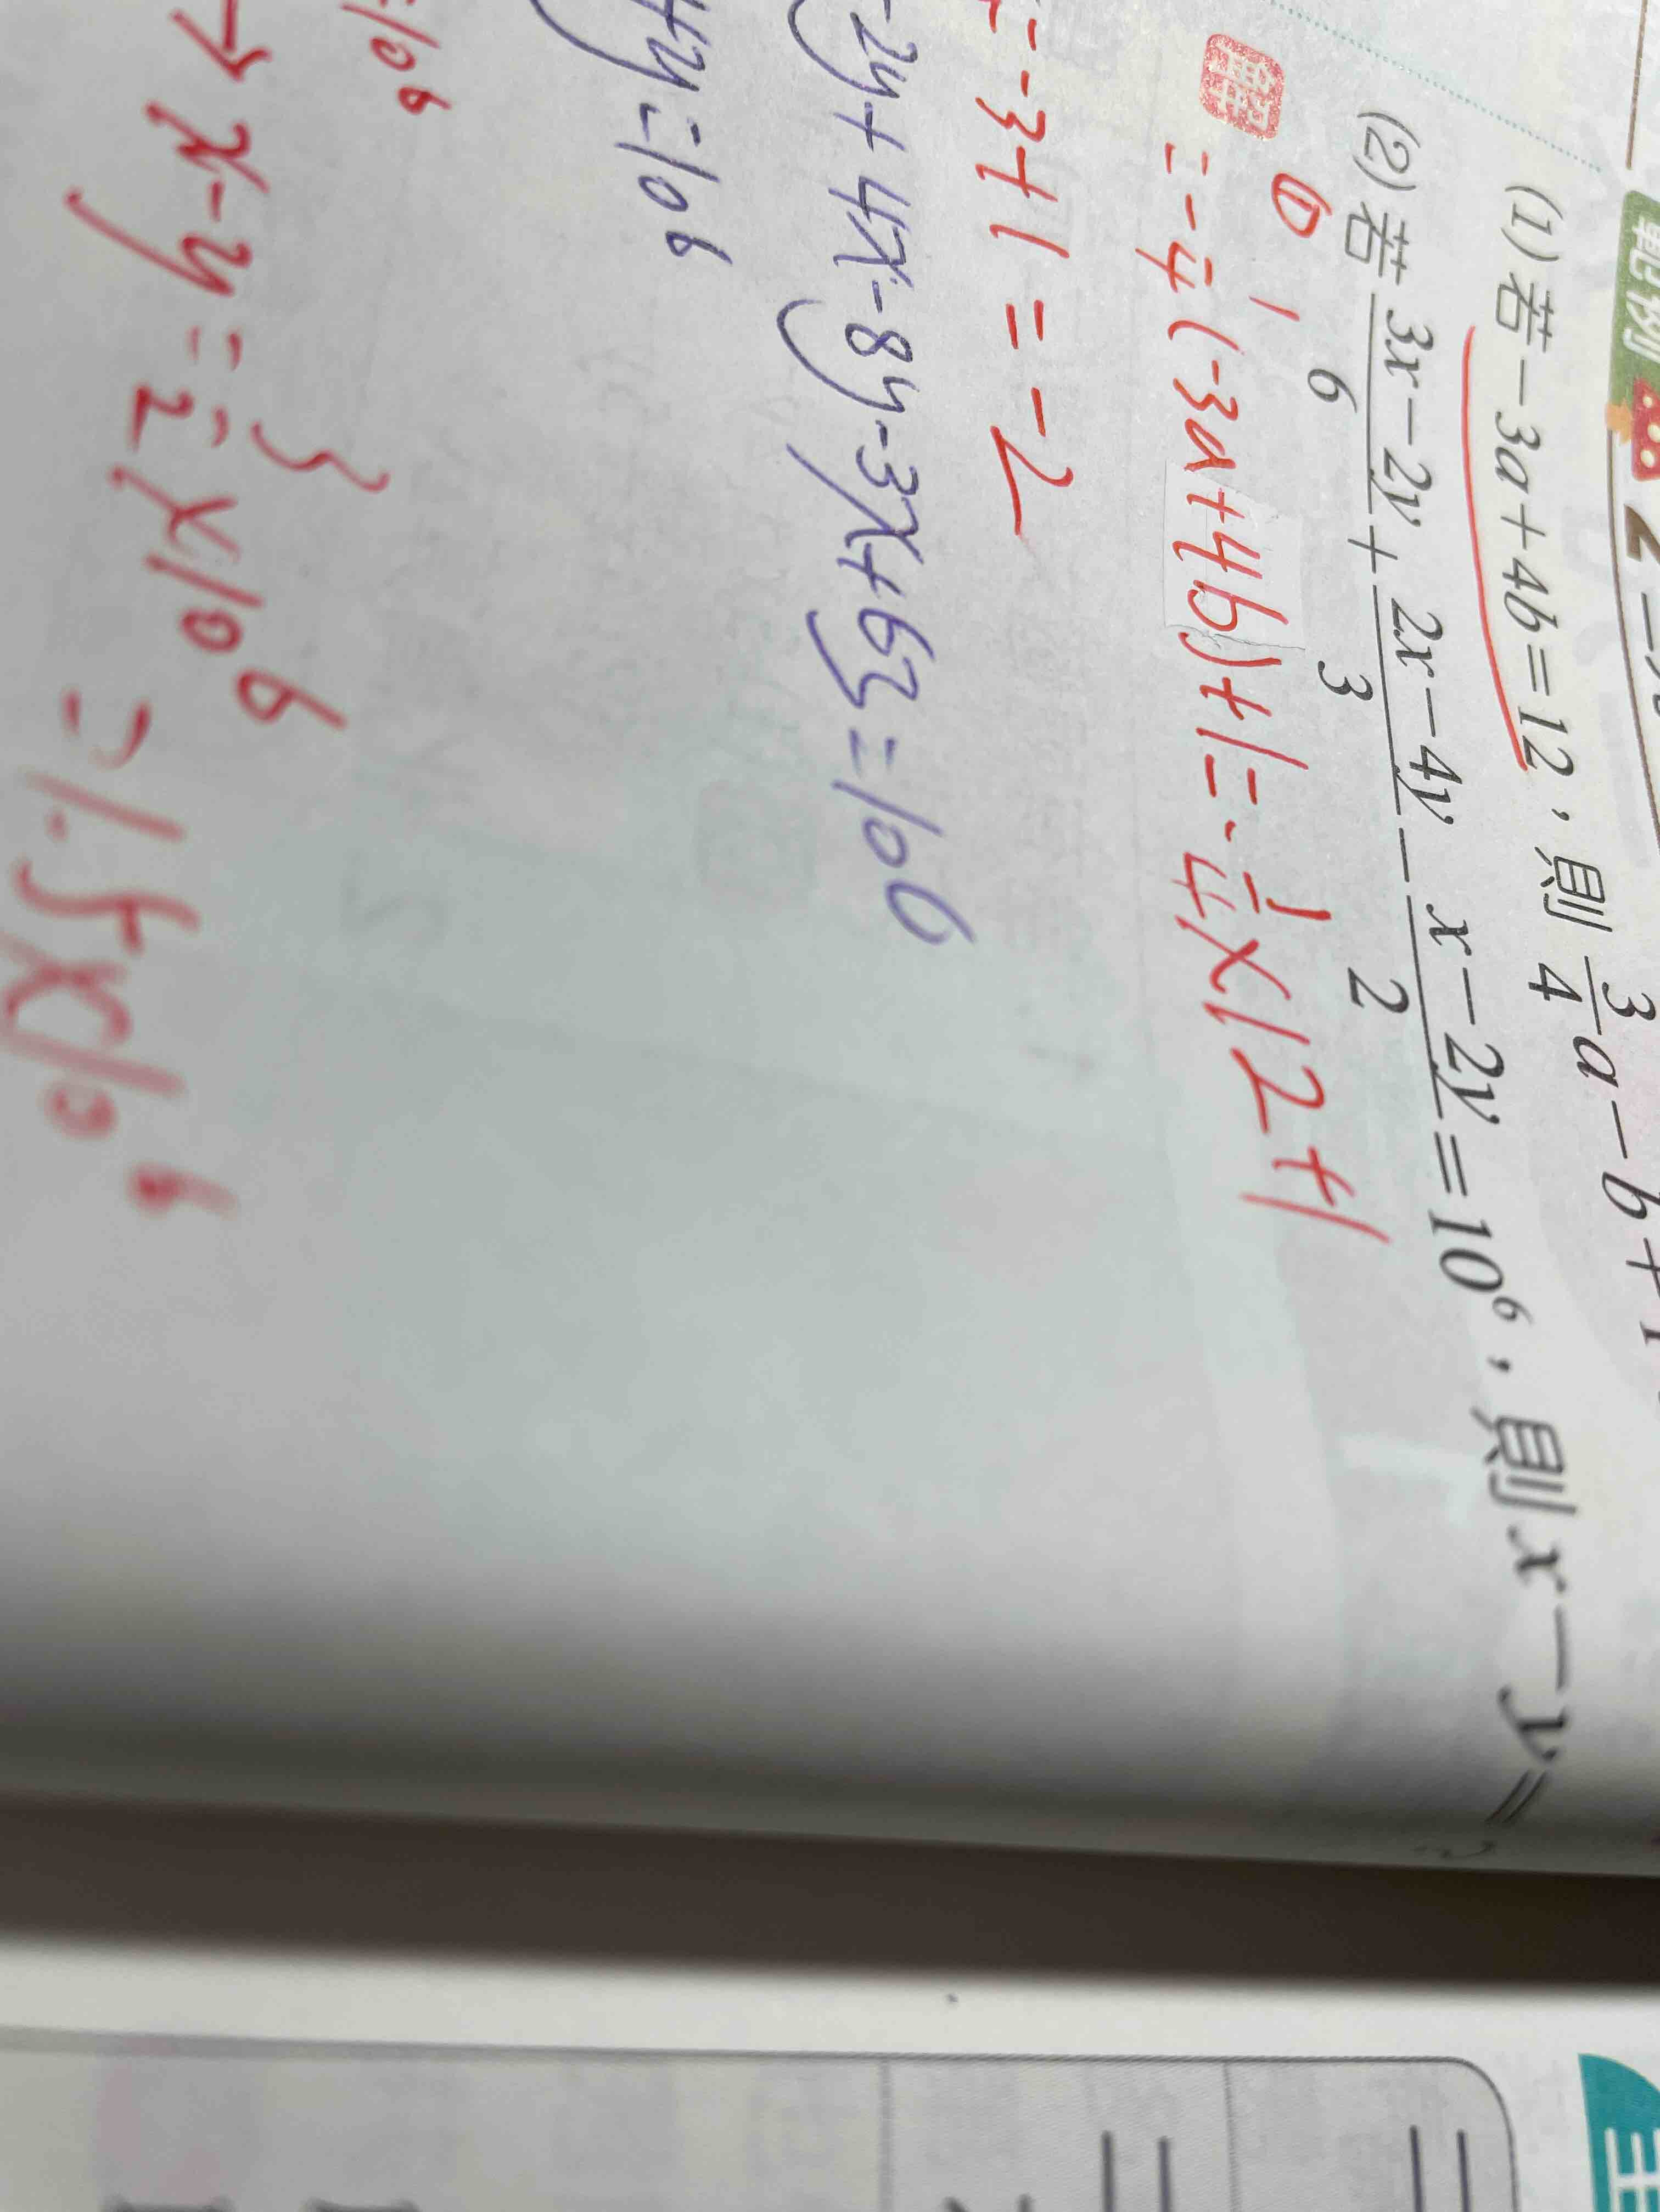 範例
(1)若-3a+4b=12,則3/4a-b+1
(2)若(3x-2y)/6+(2x-4y)/3-(x-2y)/2=10⁶,則x-y=?
解
① =-1/4(-3a+4b)+1=-1/4×12+1
=-3+1=-2
-2y+4x-8y-3x+6y=10⁶
4y=10⁶
=10⁶
→x-y=3/2×10⁶
=1.5×10⁶